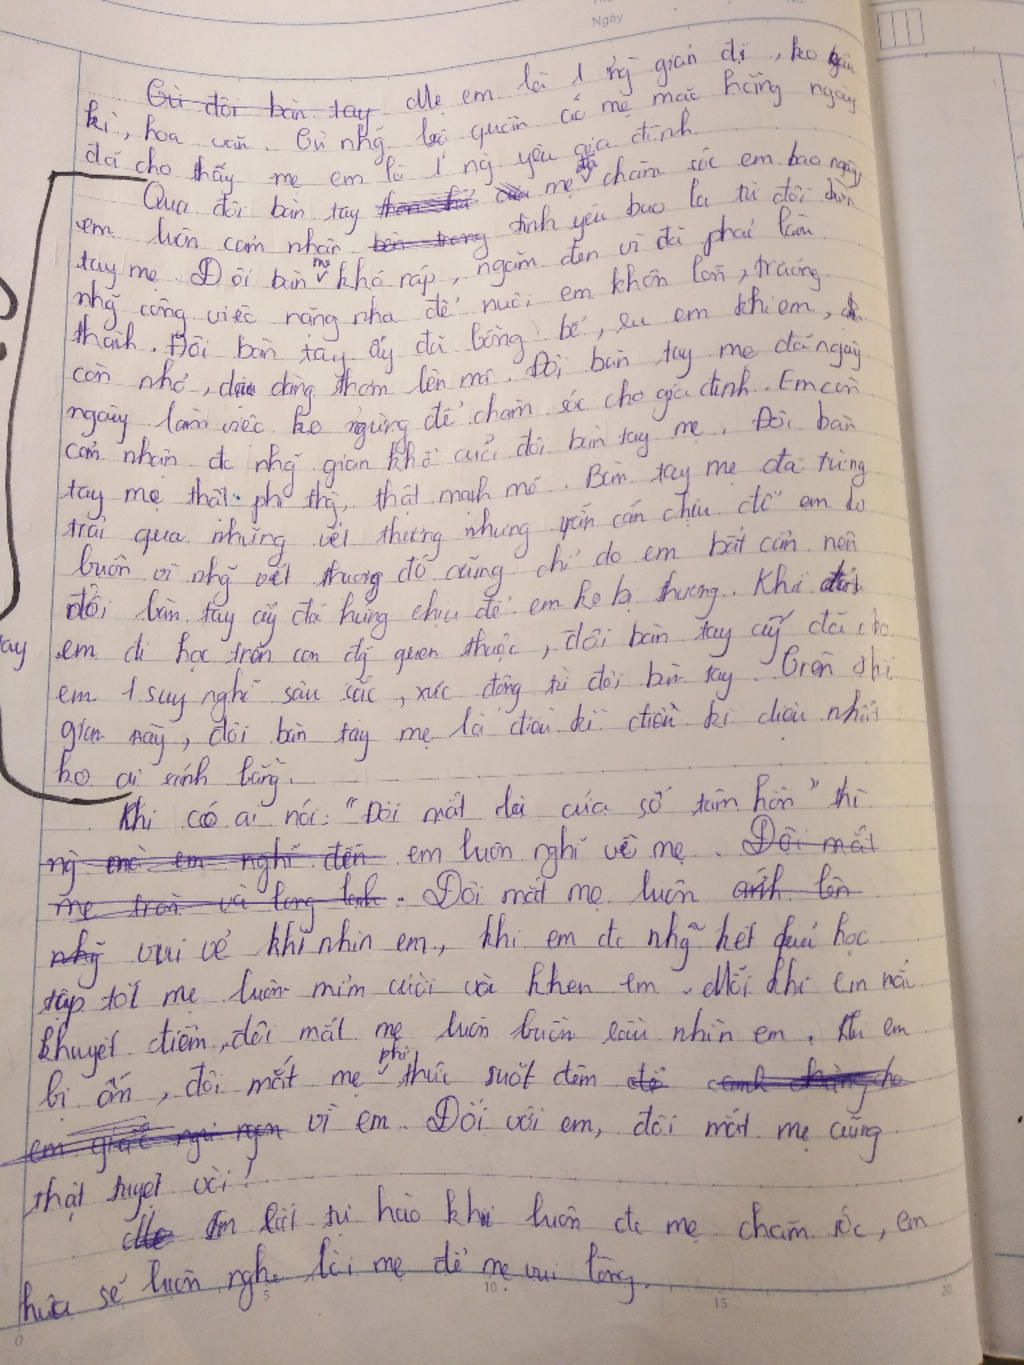 Ngày
Từ đôi bàn tay Mẹ em là 1 ng giản dị, ko cầu
kì, hoa văn. Từ nhg bộ quần áo mẹ mặc hằng ngày
đã cho thấy mẹ em là 1 ng yêu gia đình.
Qua đôi bàn tay mẹ đã chăm sóc em bao ngày
em luôn cảm nhận bên trong tình yêu bao la từ đôi bàn
tay mẹ. Đôi bàn mẹ khô ráp, ngăm đen vì đã phải làm
nhg công việc nặng nhọ để nuôi em khôn lớn, trưởng
thành. Đôi bàn tay ấy đã bồng bế, ru em khi em
còn nhỏ, dịu dàng thơm lên má. Đôi bàn tay mẹ đã ngày
ngày làm việc ko ngừng để chăm sóc cho gia đình. Em còn
cảm nhận đc nhg gian khổ của đôi bàn tay mẹ. Đôi bàn
tay mẹ thật phi thg, thật mạnh mẽ. Bàn tay mẹ đã từng
trải qua những vết thương nhưng vẫn cắn chịu để em ko
buồn vì nhg vết thương đó cũng chỉ do em bất cẩn nên
đôi bàn tay ấy đã hứng chịu để em ko bị thương. Khi
tay
em đi học trên con đg quen thuộc, đôi bàn tay ấy đã cho
em 1 suy nghĩ sâu sắc, xúc động từ đôi bàn tay. Trên thế
gian này, đôi bàn tay mẹ là điều kì điều kì diệu nhất
ko ai sánh bằng.
Khi có ai nói: "Đôi mắt là cửa sổ tâm hồn" thì
ng mà em nghĩ đến em luôn nghĩ về mẹ. Đôi mắt
mẹ tròn và long lanh. Đôi mắt mẹ luôn ánh lên
nhg vui vẻ khi nhìn em, khi em đc nhg kết quả học
tập tốt mẹ luôn mỉm cười và khen em. Mỗi khi em mắc
khuyết điểm, đôi mắt mẹ luôn buồn rầu nhìn em. Khi em
bị ốm, đôi mắt mẹ phải thức suốt đêm để canh chừng cho
em giấc ngủ ngon vì em. Đối với em, đôi mắt mẹ cũng
thật tuyệt vời!
Mẹ Em rất tự hào khi luôn đc mẹ chăm sóc, em
hứa sẽ luôn nghe lời mẹ để mẹ vui lòng.
0 5 10 15 20